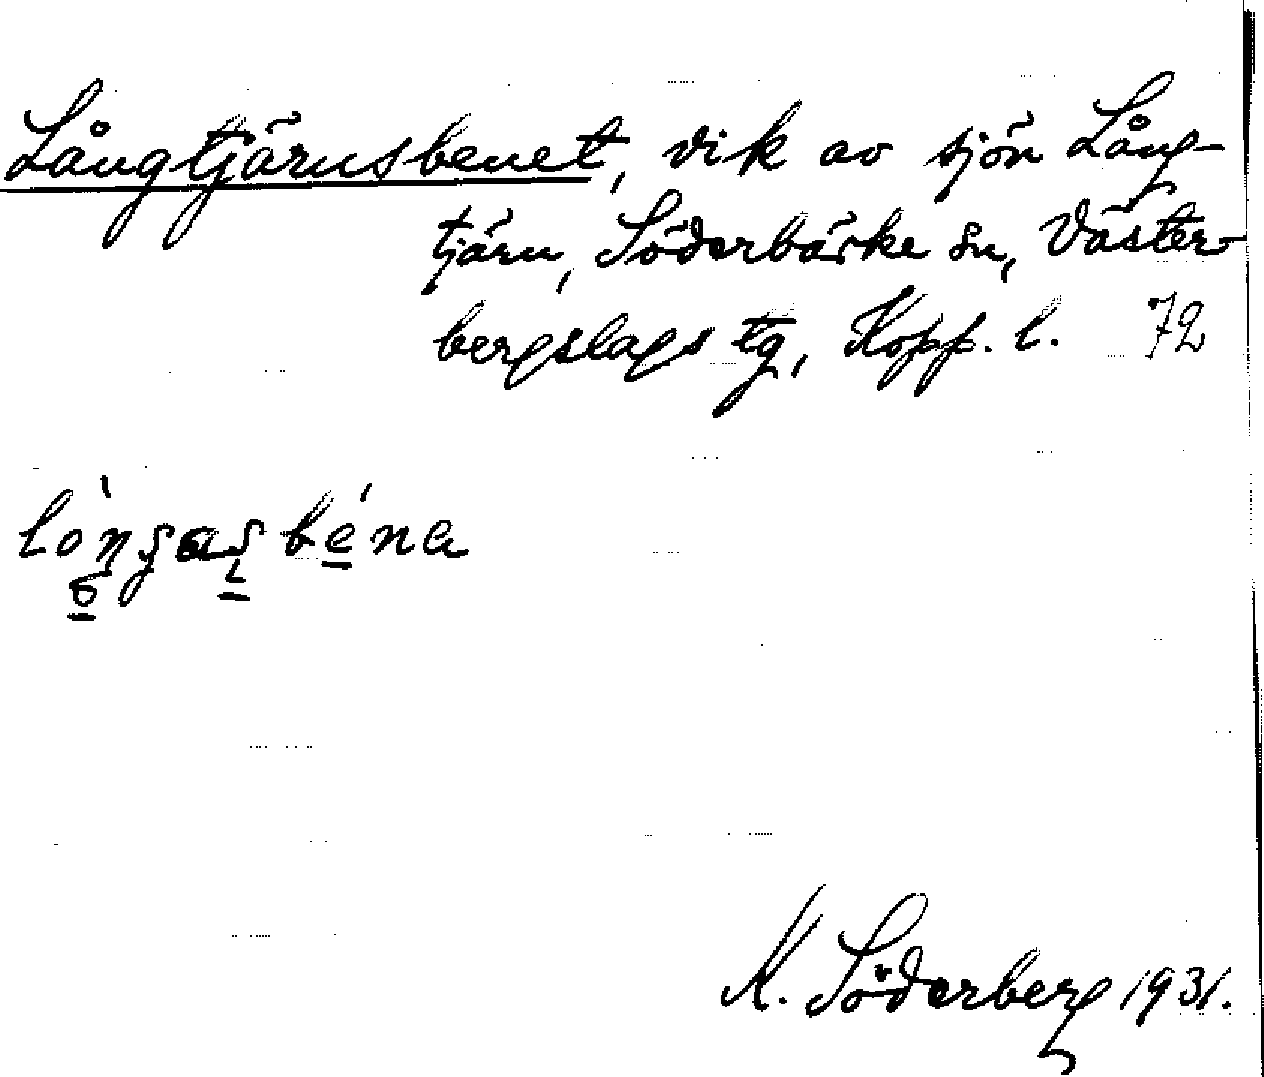 Långtjärnsbenet, vik av sjön Lång-
tjärn, Söderbärke sn, Väster-
bergslags tg, Kopp. l. 72
K. Söderberg 1931.